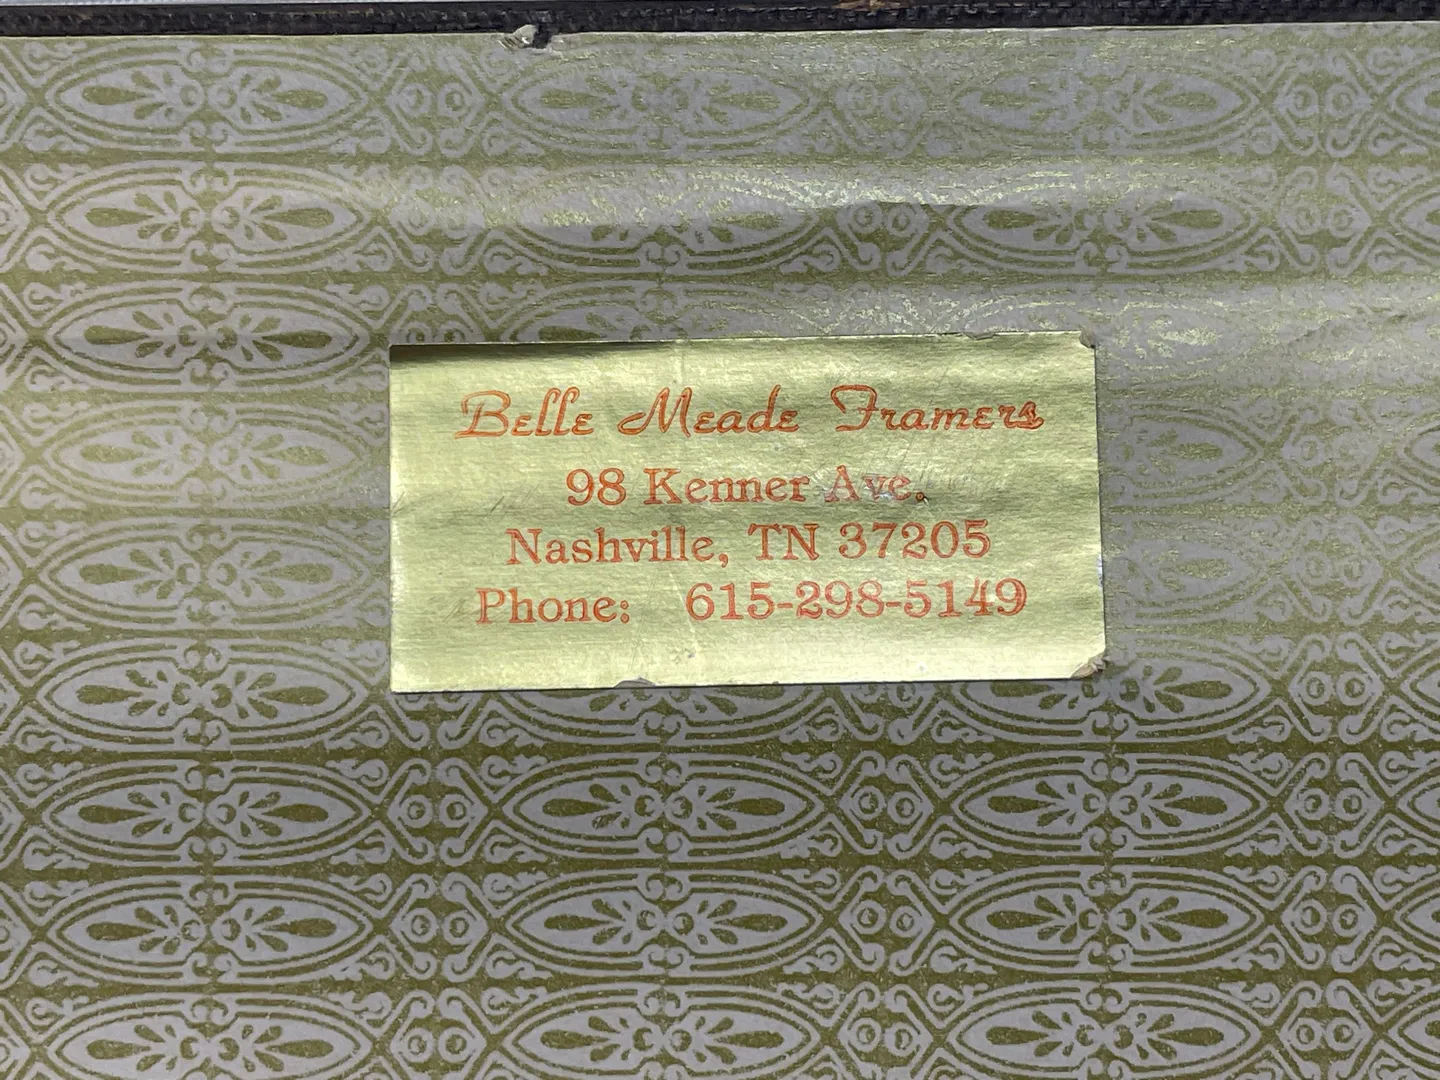 Belle Meade Framers
98 Kenner Ave.
Nashville, TN 37205
Phone: 615-298-5149